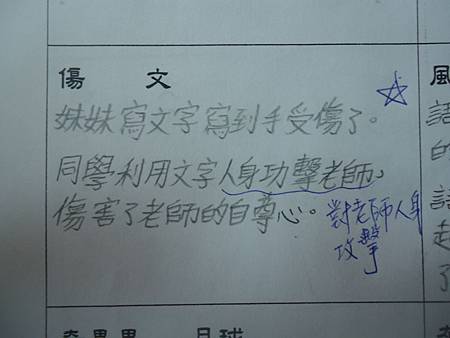 傷 文
妹妹寫文字寫到手受傷了。
同學利用文字人身功擊老師，
傷害了老師的自尊心。
對老師人身
攻擊
風
語
的
語
起
了
月球